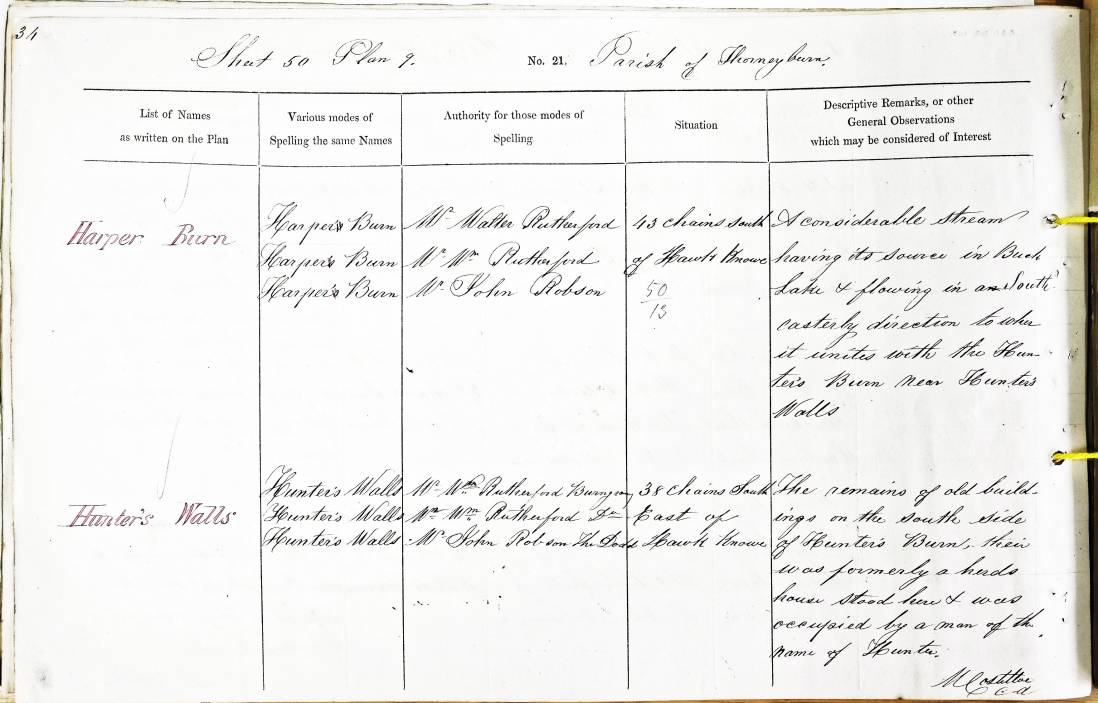 34
Sheet 50 Plan 9.
No. 21.
Parish of Thorneyburn.
List of Names
as written on the Plan
Various modes of
Spelling the same Names
Authority for those modes of
Spelling
Situation
Descriptive Remarks, or other
General Observations
which may be considered of Interest
Harper Burn
Harper's Burn
Harper's Burn
Harper's Burn
Mr Walter Rutherford
Mr Wm Rutherford
Mr John Robson
43 chains south
of Hawk Knowe
50
13
A considerable stream
having its source in Buck
Lake & flowing in a South
easterly direction to wher
it unites with the Hun-
ter's Burn near Hunter's
Walls
Hunter's Walls
Hunter's Walls
Hunter's Walls
Hunter's Walls
Mr Rutherford
Mr Wm Rutherford Do
Mr John Robson The Dodd
38 chains South
East of
Hawk Knowe
The remains of old build-
ings on the south side
of Hunter's Burn, their
was formerly a herds
house stood here & was
occupied by a man of the
name of Hunter.